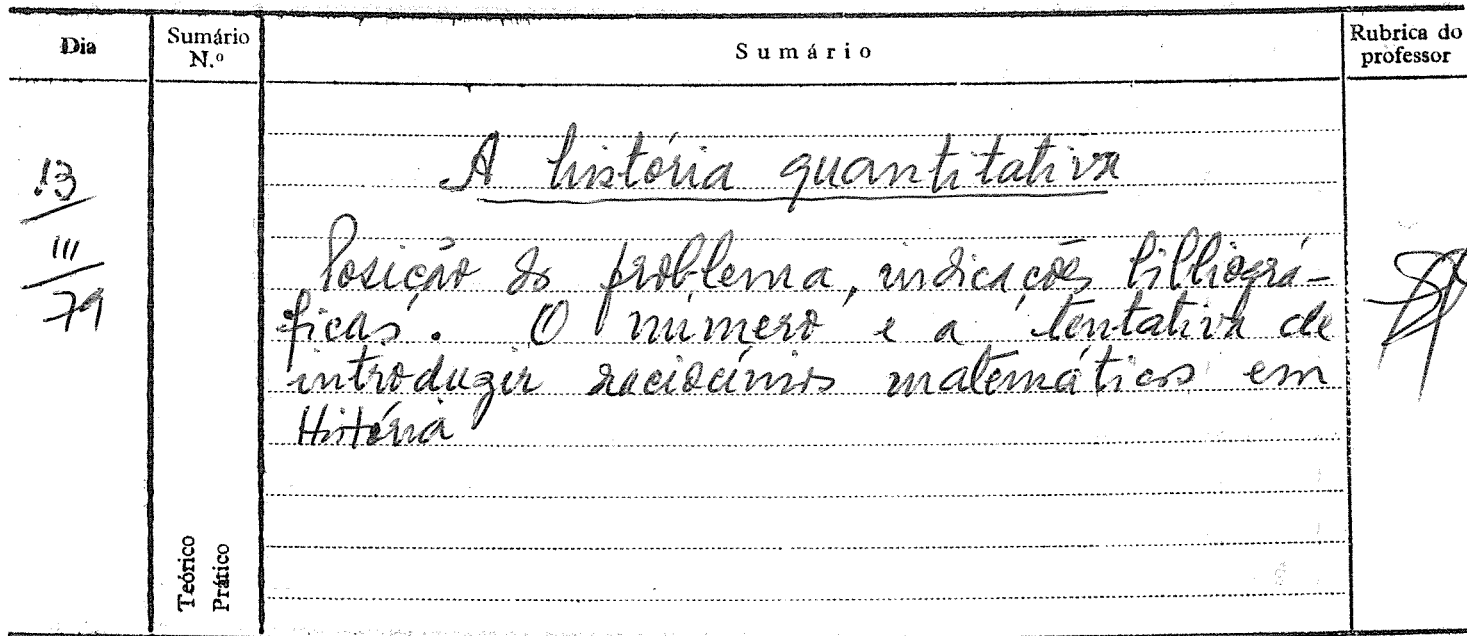 Dia
Sumário
N.º
Sumário
Rubrica do
professor
13
III
79
A história quantitativa
Posição do problema, indicações bibliográ-
ficas. O número e a tentativa de
introduzir raciocínios matemáticos em
História
Teórico
Prático